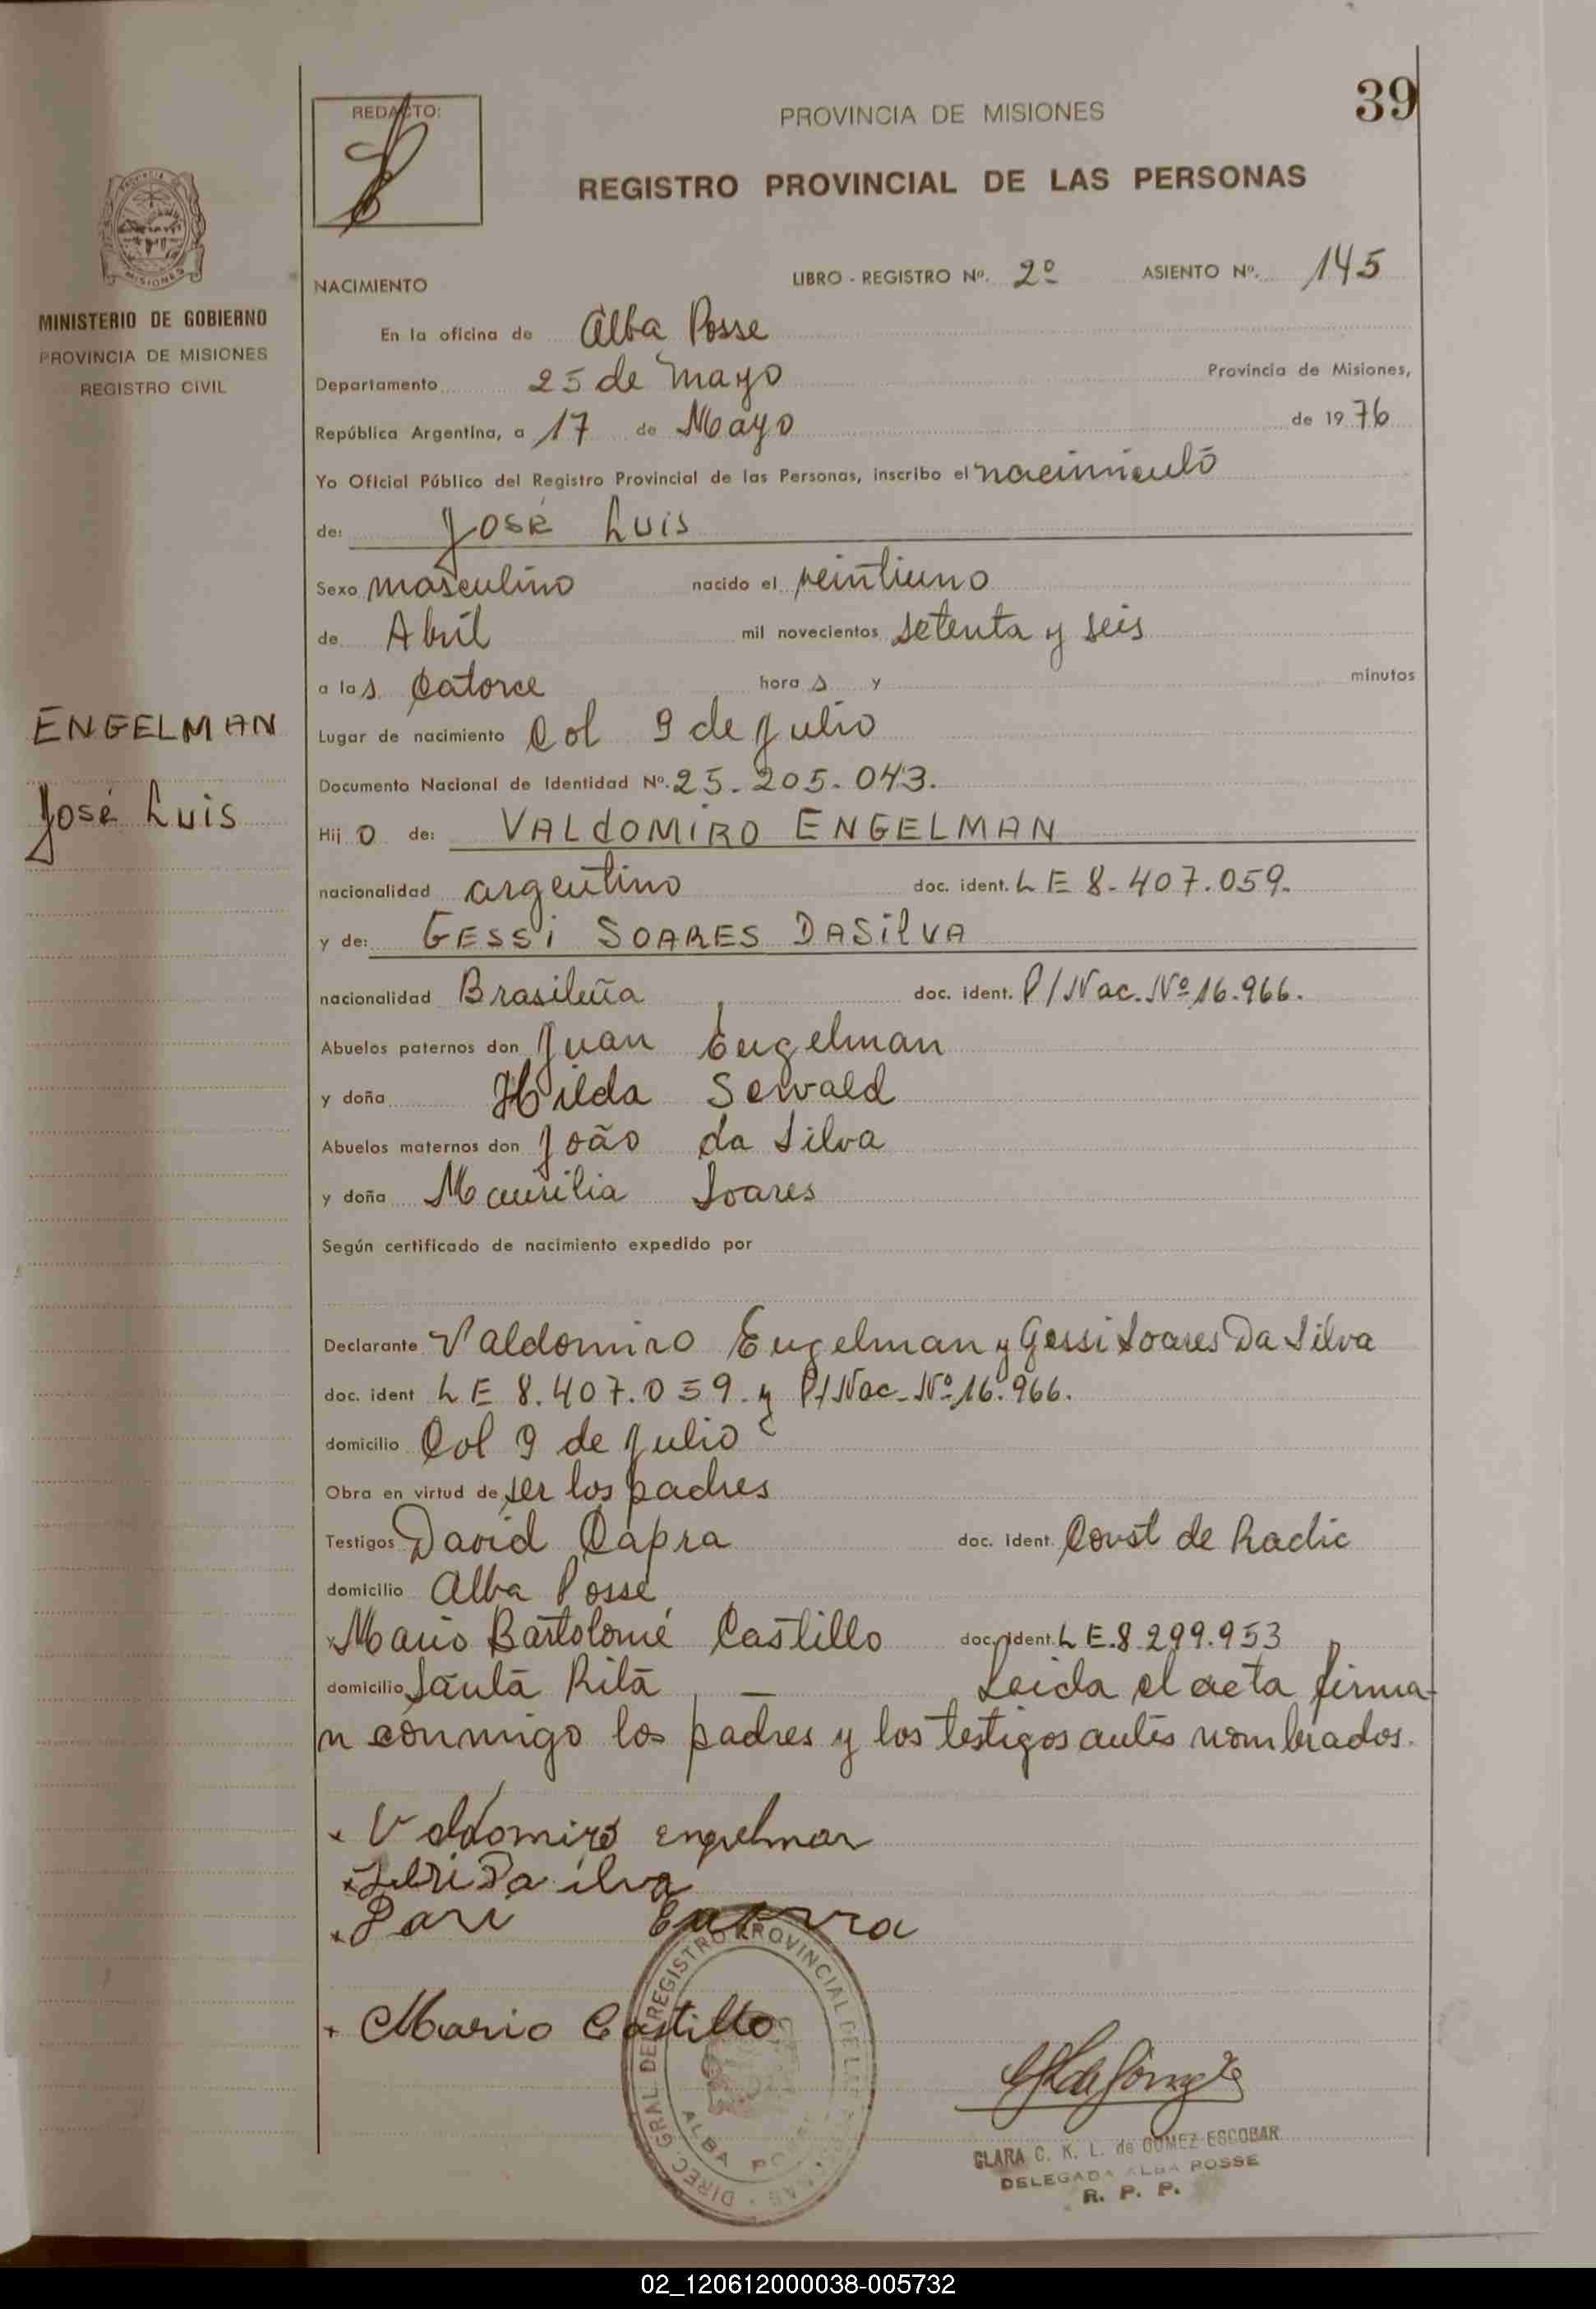 39
REDACTO:
PROVINCIA DE MISIONES
REGISTRO PROVINCIAL DE LAS PERSONAS
MISIONES
MINISTERIO DE GOBIERNO
PROVINCIA DE MISIONES
REGISTRO CIVIL
NACIMIENTO LIBRO - REGISTRO Nº. 2º ASIENTO Nº. 145
En la oficina de Alba Posse
Departamento 25 de Mayo Provincia de Misiones,
República Argentina, a 17 de Mayo de 1976
Yo Oficial Público del Registro Provincial de las Personas, inscribo el nacimiento
de: José Luis
Sexo masculino nacido el veintiuno
de Abril mil novecientos setenta y seis
a las catorce horas y minutos
ENGELMAN
José Luis
Lugar de nacimiento Col 9 de Julio
Documento Nacional de Identidad Nº. 25.205.043.
Hijo de: VALdOMiRO ENGELMAN
nacionalidad argentino doc. ident. L E 8.407.059.
y de: GESSi SOARES DASilVA
nacionalidad Brasileña doc. ident. P/Nac. Nº 16.966.
Abuelos paternos don Juan Engelman
y doña Hilda Sewald
Abuelos maternos don João da Silva
y doña Maurilia Soares
Según certificado de nacimiento expedido por
Declarante Valdomiro Engelman y Gessi Soares Da Silva
doc. ident L E 8.407.059. y P/Nac. Nº 16.966.
domicilio Col 9 de Julio
Obra en virtud de ser los padres
Testigos David Capra doc. ident. Const de Radic
domicilio Alba Posse
y Mario Bartolomé Castillo doc. ident. L E. 8.299.953
domicilio Santa Rita — Leida el acta firma-
n conmigo los padres y los testigos antes nombrados.
x Valdomiro engelman
x Da ilva
x
+ Mario Castillo
DIREC. GRAL. DEL REGISTRO PROVINCIAL DE LAS PERSONAS
ALBA POSSE
CLARA C. K. L. de GOMEZ ESCOBAR
DELEGADA ALBA POSSE
R. P. P.
02_120612000038-005732